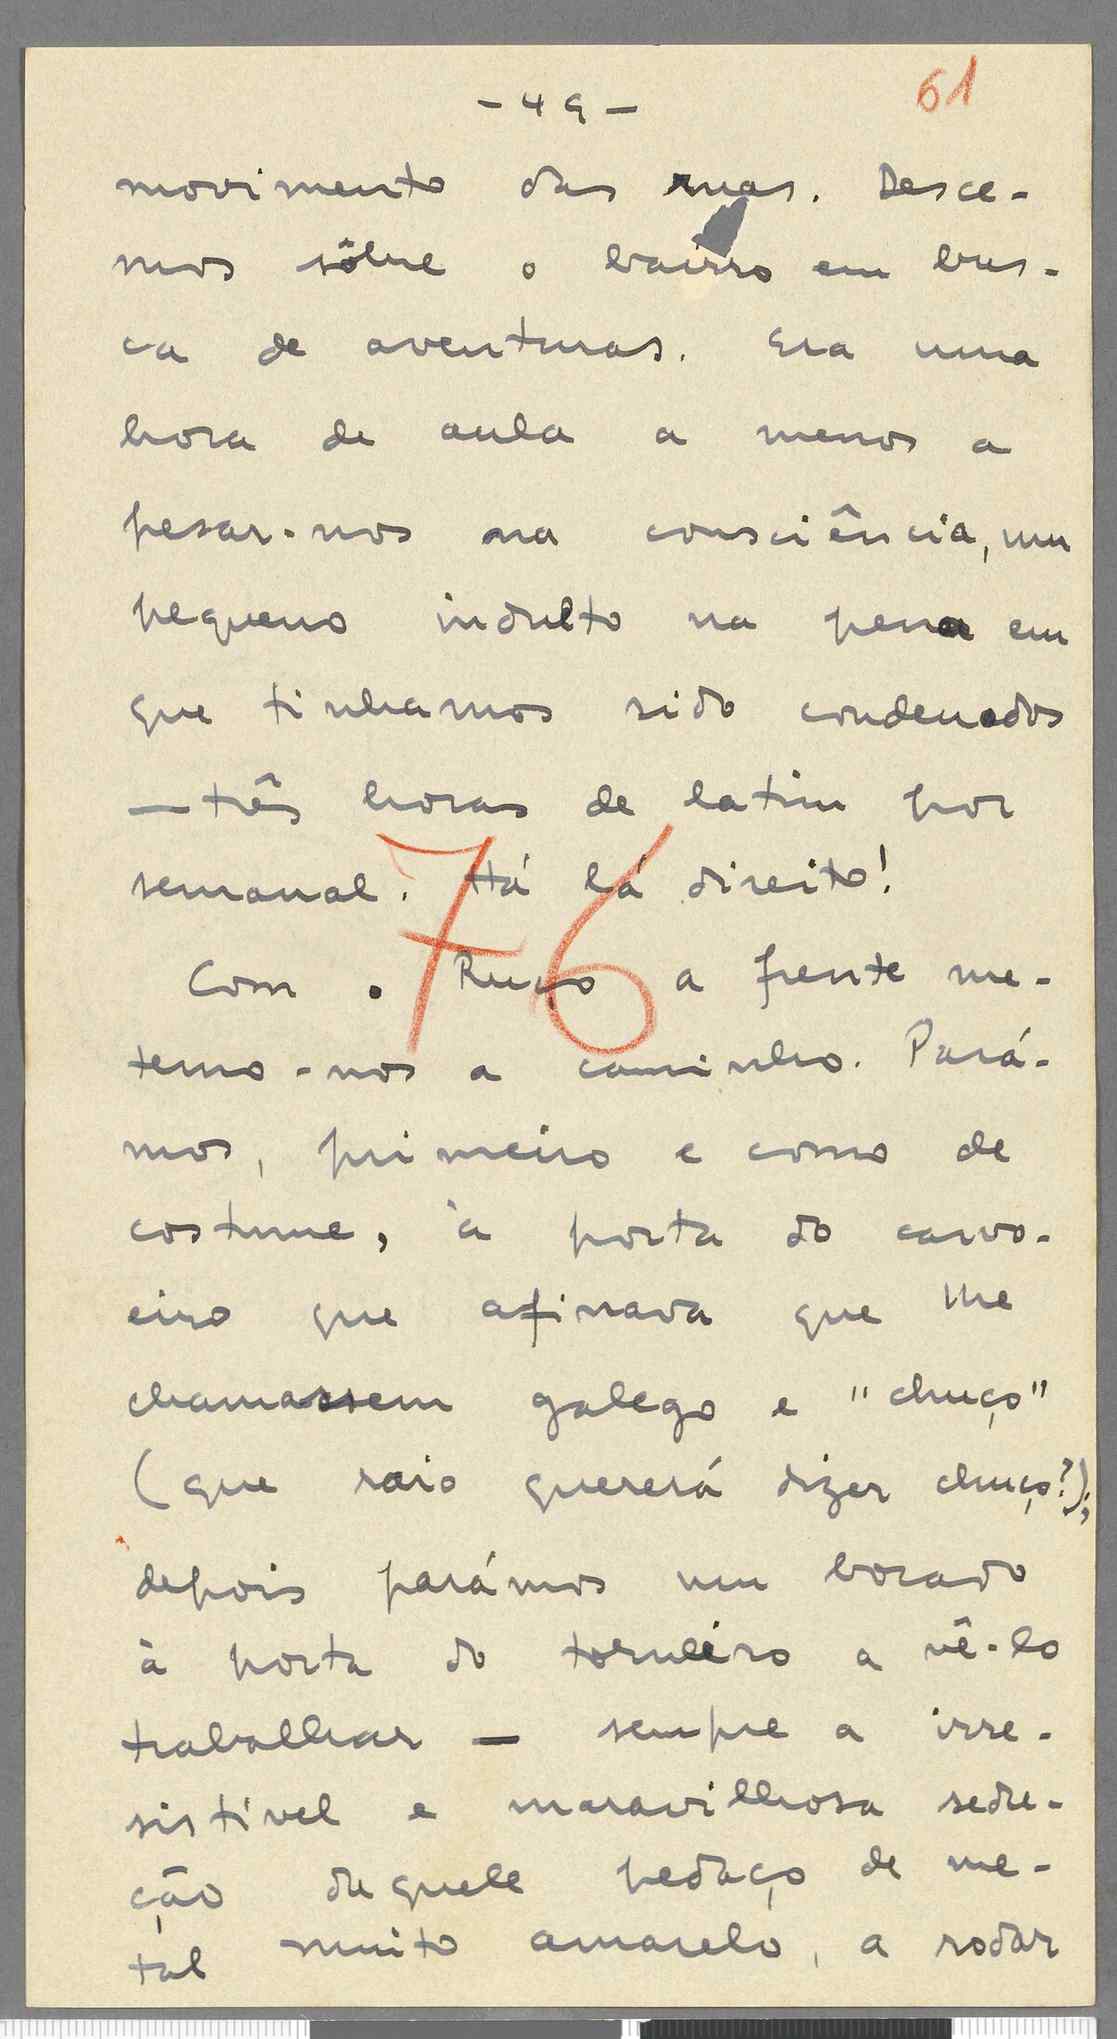 - 49 -
61
movimento das ruas. Desce-
mos sôbre o bairro em bus-
ca de aventuras. Era uma
hora de aula a menos a
pesar-nos na consciência, um
pequeno indulto na pena em
que tinhamos sido condenados
— três horas de latim por
semana! Há lá direito!
76
Com o Ruço a frente me-
temo-nos a caminho. Pará-
mos, primeiro e como de
costume, à porta do carvo-
eiro que afinava que lhe
chamassem galego e "chuço"
(que raio quererá dizer chuço?);
depois parámos um bocado
à porta do torneiro a vê-lo
trabalhar — sempre a irre-
sistível e maravilhosa sedu-
ção daquele pedaço de me-
tal muito amarelo, a rodar